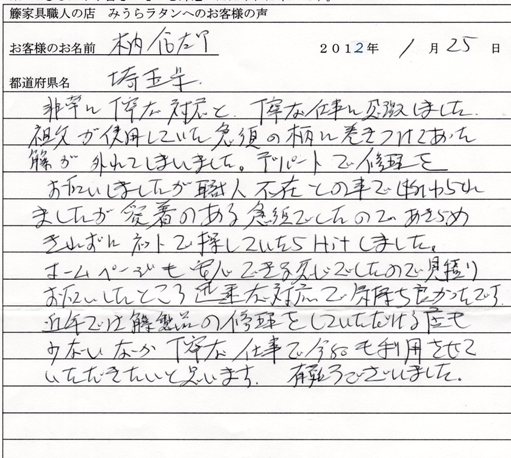 籐家具職人の店 みうらラタンへのお客様の声
お客様のお名前 柄 信 2012年 1月25日
都道府県名 埼玉県
非常に丁寧な対応と、丁寧な仕事に感激しました。
祖父が使用していた急須の柄に巻きつけてあった
籐が外れてしまいました。デパートで修理を
お願いしましたが職人不在との事で断わられ
ましたが愛着のある急須でしたのであきらめ
きれずにネットで探していたらHitしました。
ホームページも安心できる感じでしたので見積り
お願いしたところ迅速な対応で気持ち良かったです。
近年では籐製品の修理をしていただける店も
少ないなか丁寧な仕事で今後も利用させて
いただきたいと思います。有難うございました。